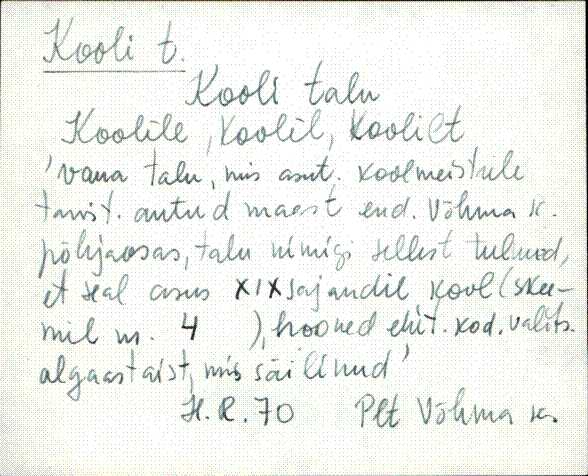 Kooli t.
Kooli talu
Koolile, koolil, koolilt
'vana talu, mis asut. koolmeistrile
tarvit. antud maast end. Võhma k.
põhjaosas, talu nimigi sellest tulnud,
et seal asus XIX sajandil kool (skee-
mil nr. 4 ), hooned ehit. kod. valits.
algaastaist, mis säilinud'
H. R. 70 Plt Võhma k.